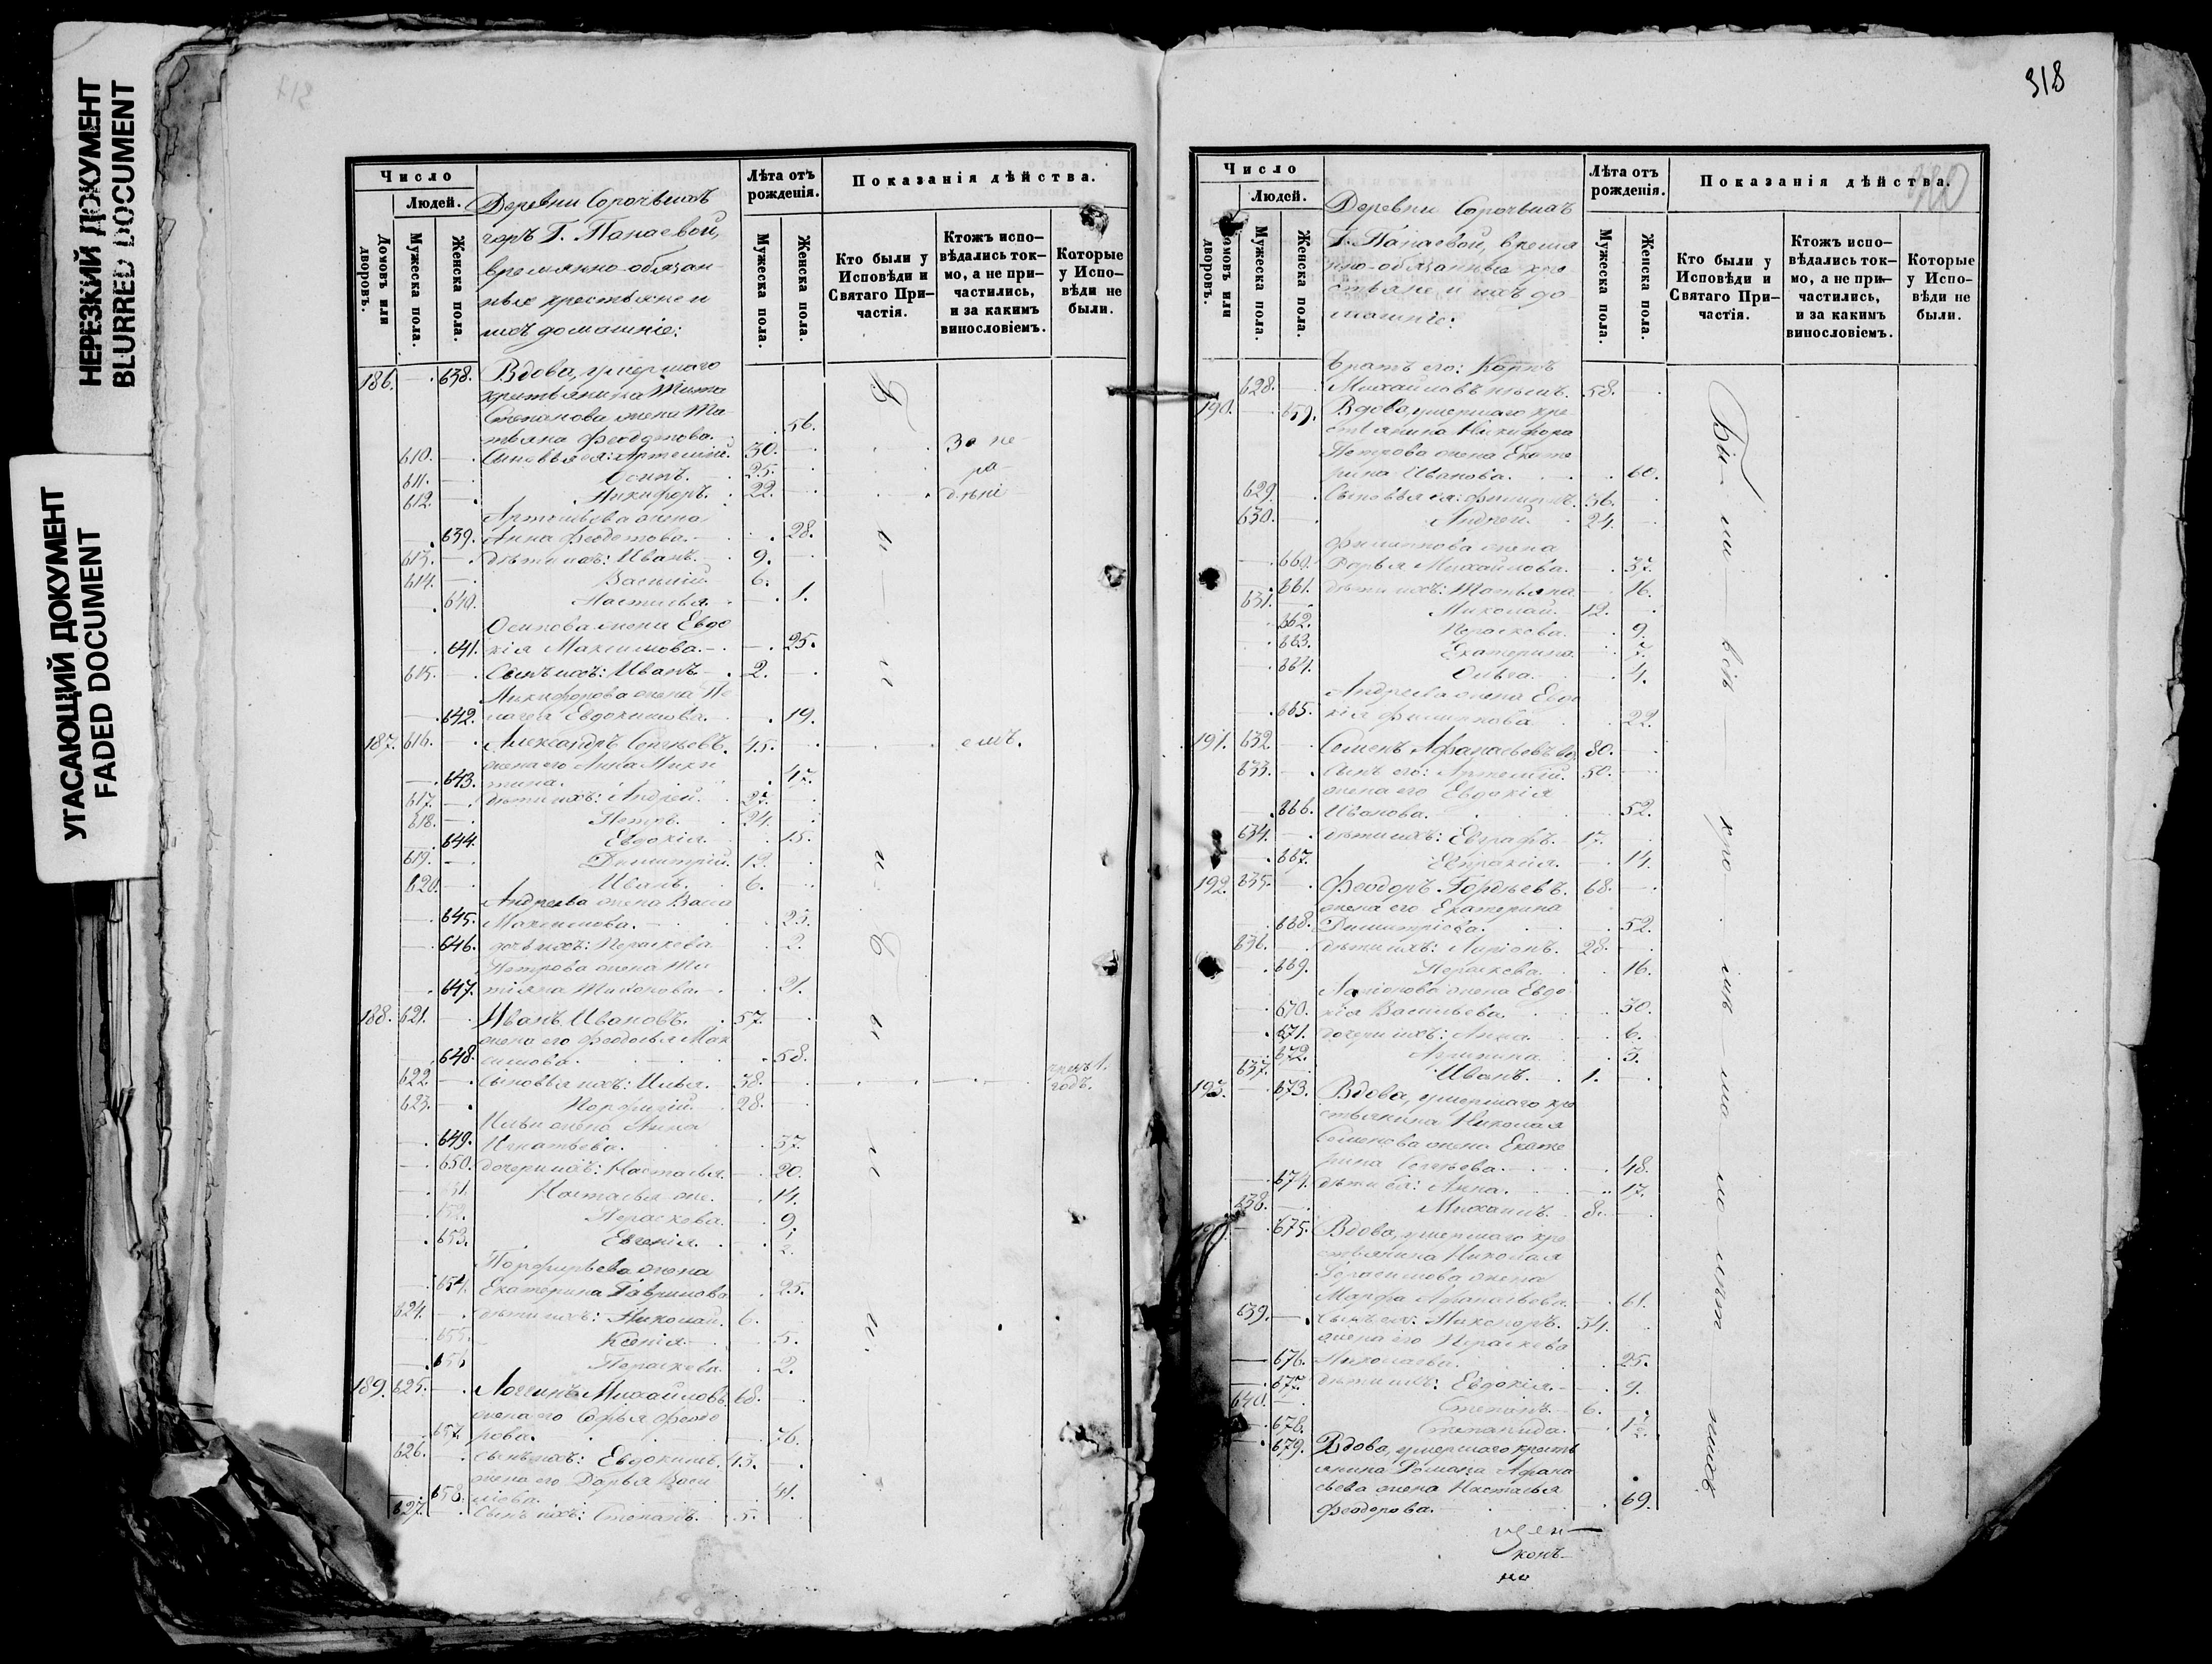 НЕРЕЗКИЙ ДОКУМЕНТ
BLURRED DOCUMENT
УГАСАЮЩИЙ ДОКУМЕНТ
FADED DOCUMENT
Число
Людей.
Домовъ или дворовъ.
Мужеска пола.
Женска пола.
Деревни
Г. Панаевой,
временно-обязан-
ные крестьяне и
ихъ домашніе:
Лѣта отъ рожденія.
Мужеска пола.
Женска пола.
Показанія дѣйства.
Кто были у Исповѣди и Святаго При-частія.
Ктожъ испо-вѣдались ток-мо, а не при-частились, и за какимъ винословіемъ.
Которые у Испо-вѣди не были.
186. 638. Вдова, умершаго
крестьянина
Степанова жена Та-
тьяна Феодотова. 56.
610. Сыновья ея: Артемій. 30. За не-
611. Осипъ. 25. ра-
612. Никифоръ. 22. дѣні-
Артемьева жена
639. Анна Феодотова. 28.
613. дѣти ихъ: Иванъ. 9.
614. Василій. 6.
640. Настасья. 1.
Осипова жена Евдо
641. кія Максимова. 25.
615. Сынъ ихъ: Иванъ. 2.
Никифорова жена Пе
642. лагея Евдокимова. 19.
187. 616. Александръ Сергѣевъ. 45. емъ.
жена его Анна Ники
643. тина. 47.
617. дѣти ихъ: Андрей. 27.
618. Петръ. 24.
644. Евдокія. 15.
619. Димитрій. 12.
620. Иванъ. 6.
Андреева жена Васса
645. Максимова. 25.
646. дочь ихъ: Параскева 2.
Петрова жена Та
647. тіяна Тихонова. 21.
188. 621. Иванъ Ивановъ. 57.
жена его Феодосья Мак
648. симова. 58.
622. Сыновья ихъ: Илья. 38. 1. годъ.
623. Порфирій. 28.
Ильи жена Анна
649. Игнатьева. 37.
650. дочери ихъ: Настасья. 20.
Настасья же. 14.
Параскева. 9.
653. Евгенія. 2.
Порфирьева жена
654. Екатерина Гаврилова 25.
624. дѣти ихъ: Николай. 6.
655. Ксенія. 5.
656 Параскева. 2.
189. 625. Логгинъ Михайловъ. 68.
жена его Софья Феодо
657. рова. 76.
626. сынъ ихъ: Евдокимъ. 43.
жена его Дарья Васи
658. льева. 41.
627. Сынъ ихъ: Степанъ. 5.
318
Число
Людей.
Домовъ или дворовъ.
Мужеска пола.
Женска пола.
Деревни
Г. Панаевой, време
нно-обязанные кре
стьяне и ихъ до
машніе:
Лѣта отъ рожденія.
Мужеска пола.
Женска пола.
Показанія дѣйства.
Кто были у Исповѣди и Святаго При-частія.
Ктожъ испо-вѣдались ток-мо, а не при-частились, и за какимъ винословіемъ.
Которые у Испо-вѣди не были.
Были всѣ кромѣ малолѣтнихъ
братъ его: Карпъ
628. Михайловъ 58.
190. 659. Вдова, умершаго кре
стьянина Никифора
Петрова жена Екате
рина Иванова. 60.
629. Сыновья ея: Филиппъ. 36.
630. Андрей. 24.
Филиппова жена
660. Дарья Михайлова. 37.
661. дѣти ихъ: Татьяна 16.
631. Николай. 12.
662. Параскева. 9.
663. Екатерина. 7.
664. Ольга. 4.
Андреева жена Евдо
665. кія Филиппова 22.
191. 632. Семенъ Афанасьевъ 80.
633. сынъ его: Артемій. 50.
жена его Евдокія
666. Иванова. 52.
634. дѣти ихъ: Евграфъ. 17.
667. Евпраксія. 14.
192. 635. Феодоръ Гордѣевъ. 68.
жена его Екатерина
668. Димитріева. 52.
636. дѣти ихъ: Ларіонъ. 28.
669. Параскева. 16.
Ларіонова жена Евдо
670. кія Васильева. 30.
671. дочери ихъ: Анна. 6.
672. 3.
637. Иванъ. 1.
193. 673. Вдова, умершаго кре
стьянина Николая
Семенова жена Екате
рина Сергѣева. 48.
674. дѣти ея: Анна. 17.
638. Михаилъ. 8.
675. Вдова, умершаго кре
стьянина Николая
Герасимова жена
Марфа Афанасьева. 61.
639. сынъ ея: Никаноръ. 34.
жена его Параскева
676. Николаева. 25.
677. дѣти ихъ: Евдокія. 9.
640. Степанъ. 6.
678. Степанида. 1½.
679. Вдова, умершаго кресть
янина Романа Афана
сьева жена Настасья
Феодорова. 69.